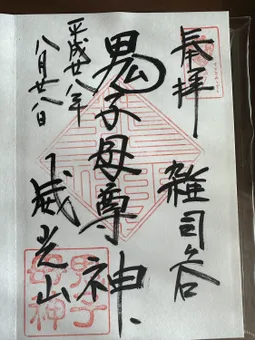 奉拝
雑司ヶ谷
鬼子母尊神
平成廿八年
八月廿八日
威光山
鬼子
母神